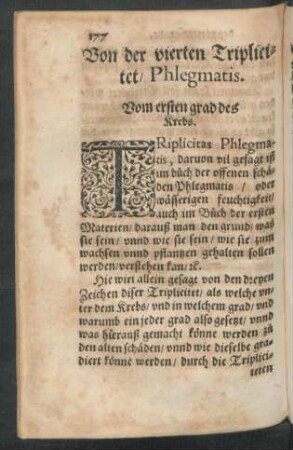 177
Von der vierten Triplici-
tet/ Phlegmatis.
Vom ersten grad des
Krebs.
TRiplicitas Phlegma-
tis, daruon vil gesagt ist
im bůch der offenen schä-
den Phlegmatis / oder
wässerigen feuchtigkeit/
auch im Bůch der ersten
Materien/ darauß man den grund/ was
sie sein/ vnnd wie sie sein/ wie sie zum
wachsen vnnd pflantzen gehalten sollen
werden/ verstehen kan/ ꝛc.
Hie wirt allein gesagt von den dreyen
Zeichen diser Triplicitet/ als welche vn-
ter dem Krebs/ vnd in welchem grad/ vnd
warumb ein jeder grad also gesetzt/ vnnd
was hierauß gemacht könne werden zů
den alten schäden/ vnnd wie dieselbe gra-
diert könne werden/ durch die Triplici-
teten